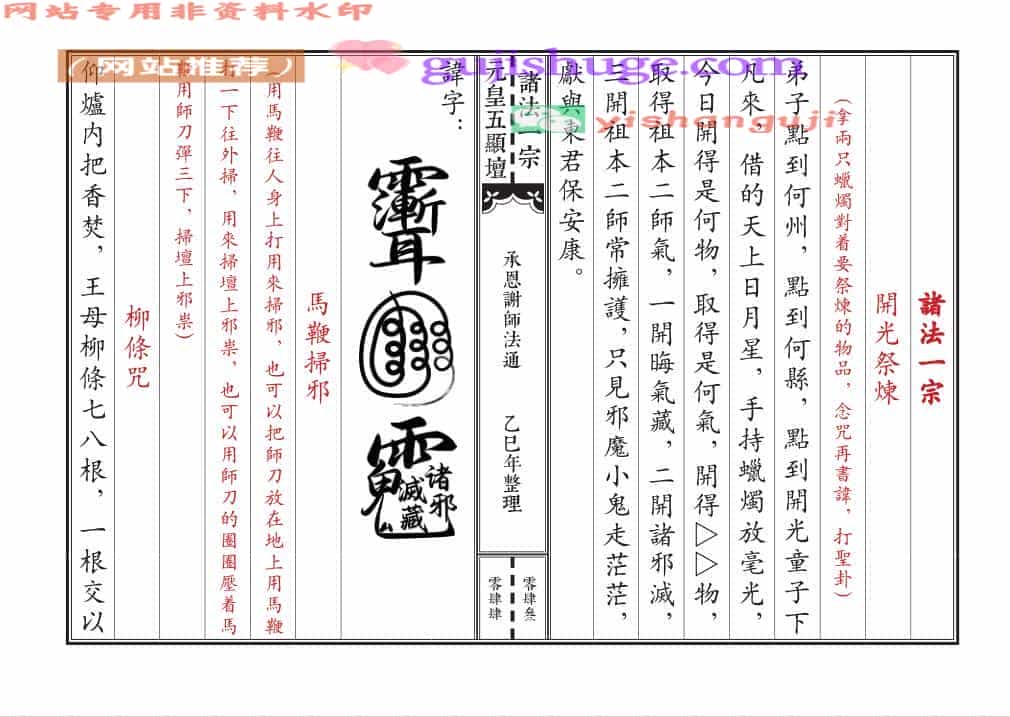 网站专用非资料水印
(网站推荐)
gujishuge.com
yishanguji
諸法一宗
開光祭煉
(拿兩只蠟燭對着要祭煉的物品，念咒再書諱，打聖卦)
弟子點到何州，點到何縣，點到開光童子下
凡來，借的天上日月星，手持蠟燭放毫光，
今日開得是何物，取得是何氣，開得▷▷物，
取得祖本二師氣，一開晦氣藏，二開諸邪滅，
三開祖本二師常擁護，只見邪魔小鬼走茫茫，
獻與東君保安康。
諸法一宗
元皇五顯壇
承恩謝師法通
乙巳年整理
零肆叁
零肆肆
諱字：
諸邪
滅藏
馬鞭掃邪
用馬鞭往人身上打用來掃邪，也可以把師刀放在地上用馬鞭
打一下往外掃，用來掃壇上邪祟，也可以用師刀的圈圈壓着馬
用師刀彈三下，掃壇上邪祟)
柳條咒
仰爐内把香焚，王母柳條七八根，一根交以